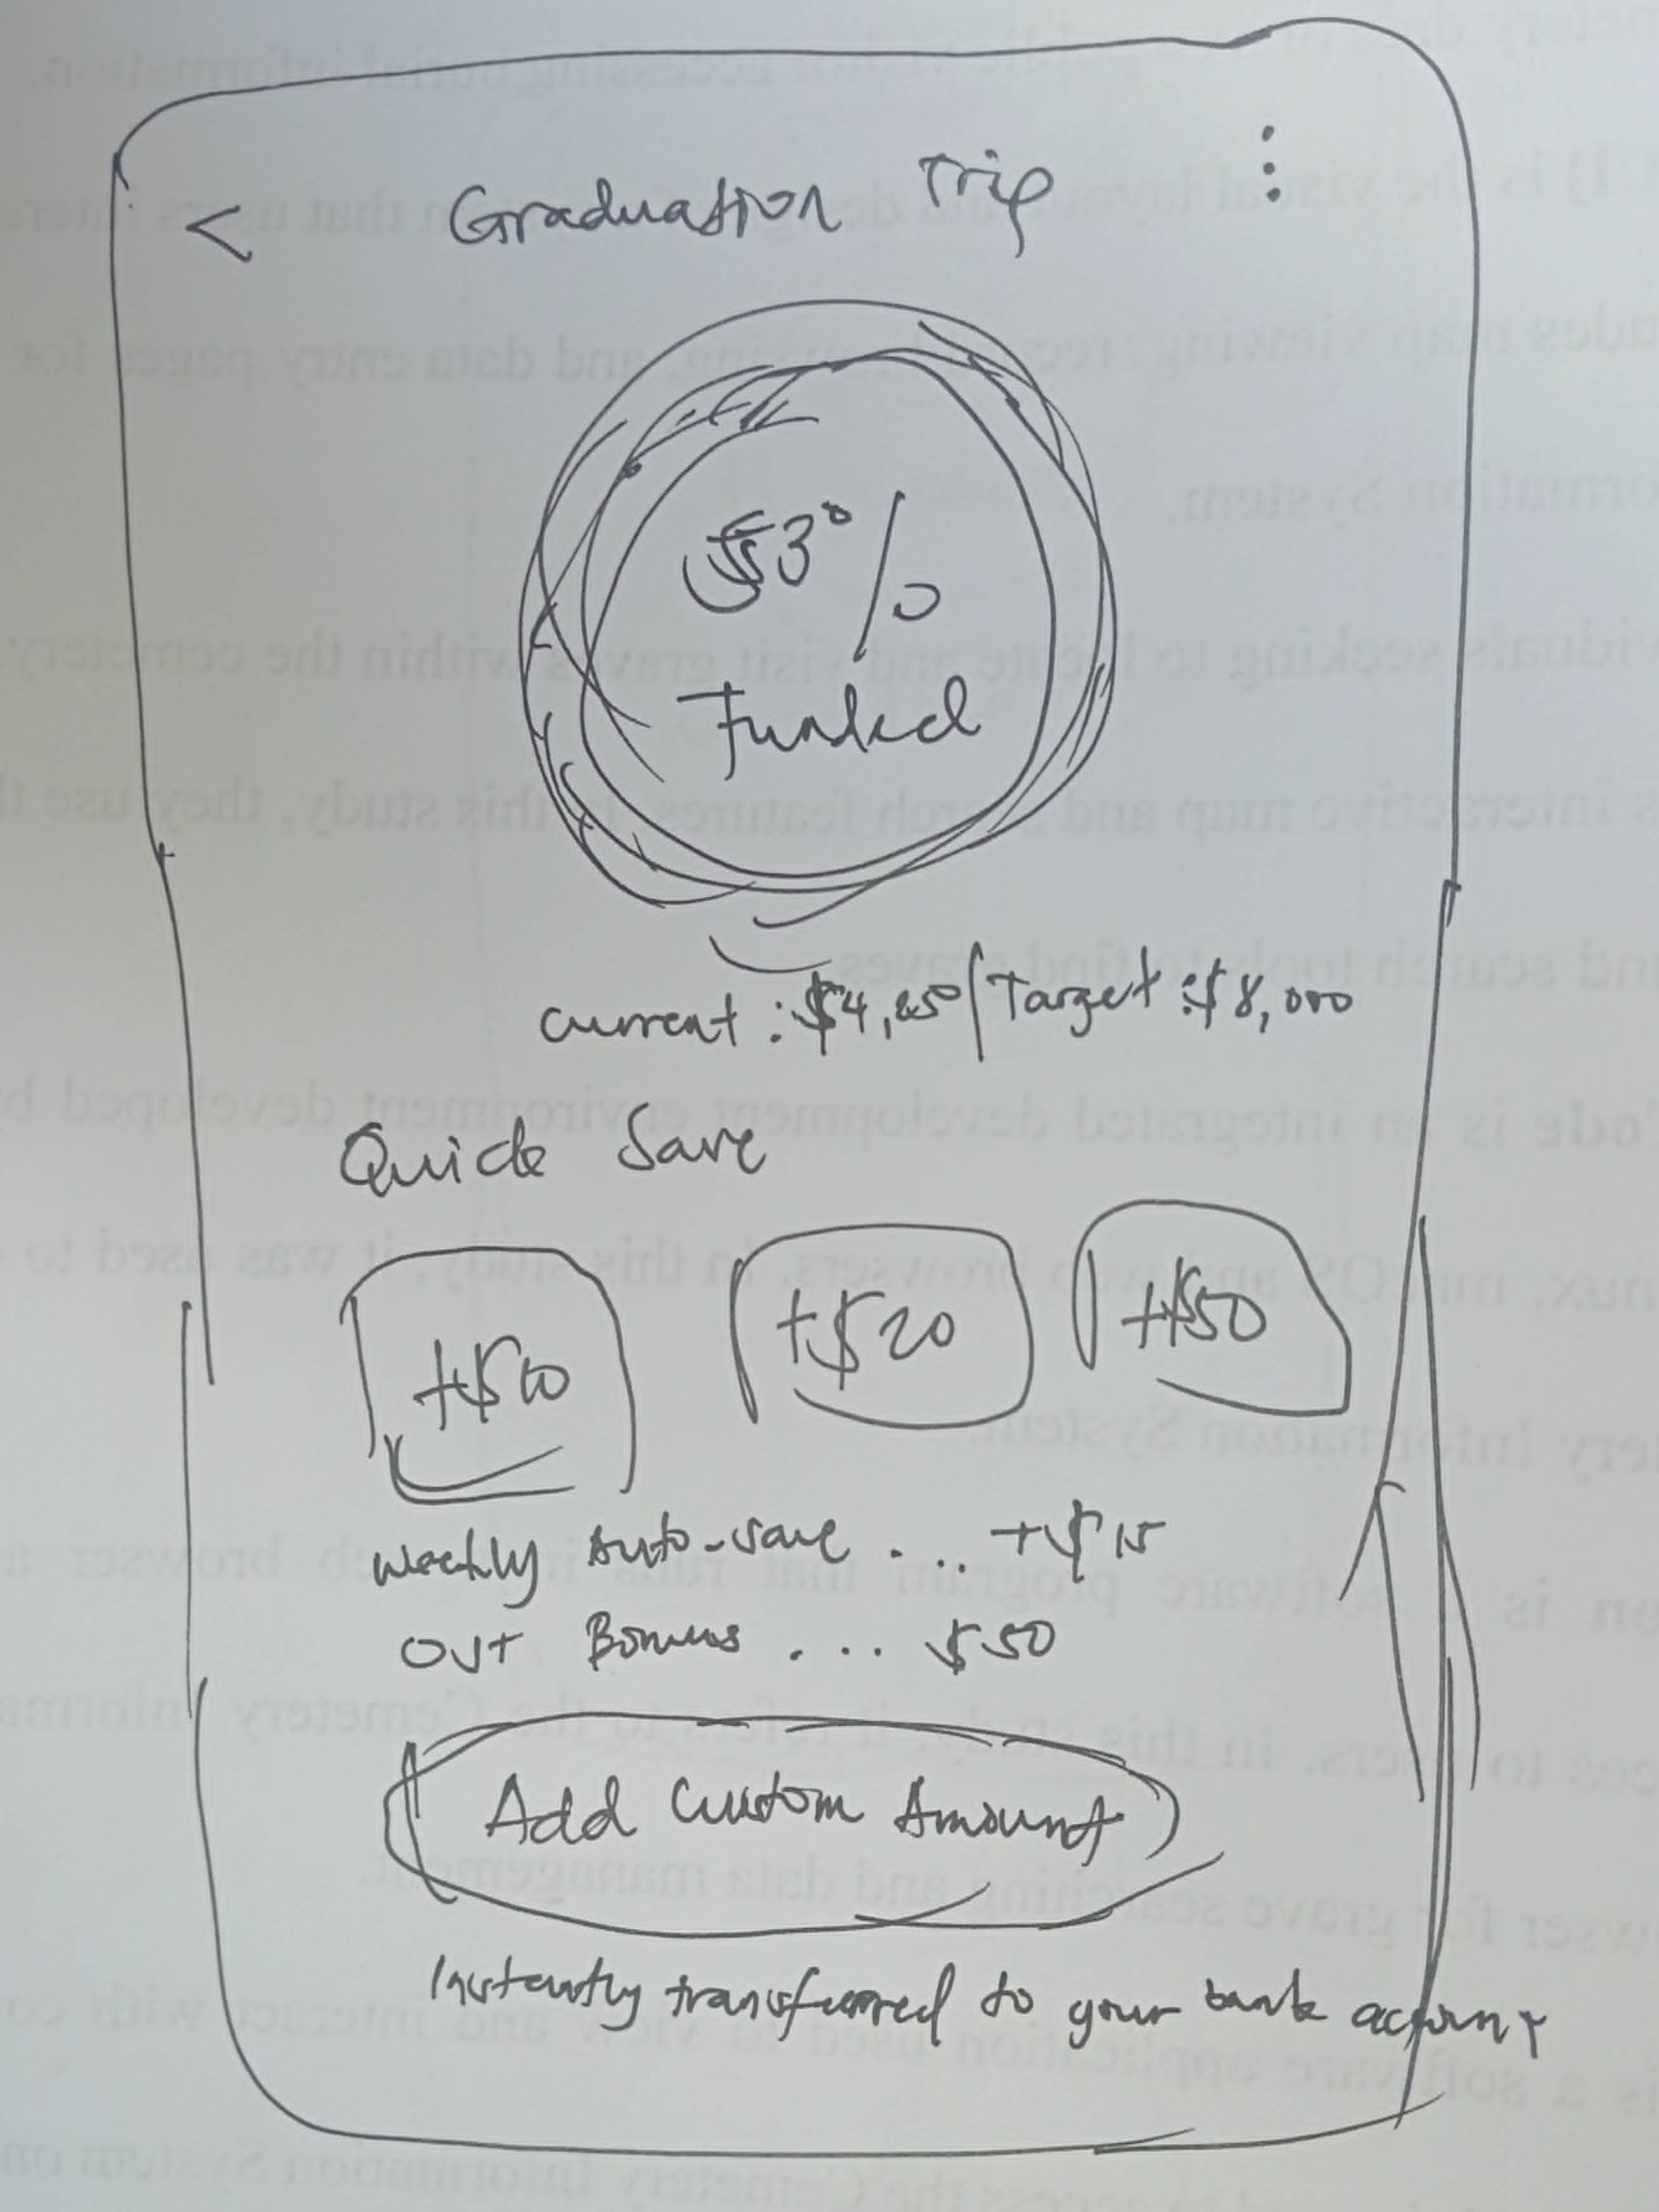 < Graduation Trip ⋮
53%
Funded
current : $4,250 / Target : $8,000
Quick Save
+$10 +$20 +$50
Weekly Auto-save . ... +$15
Bonus . ... $50
Add Custom Amount
Instantly transferred to your bank account